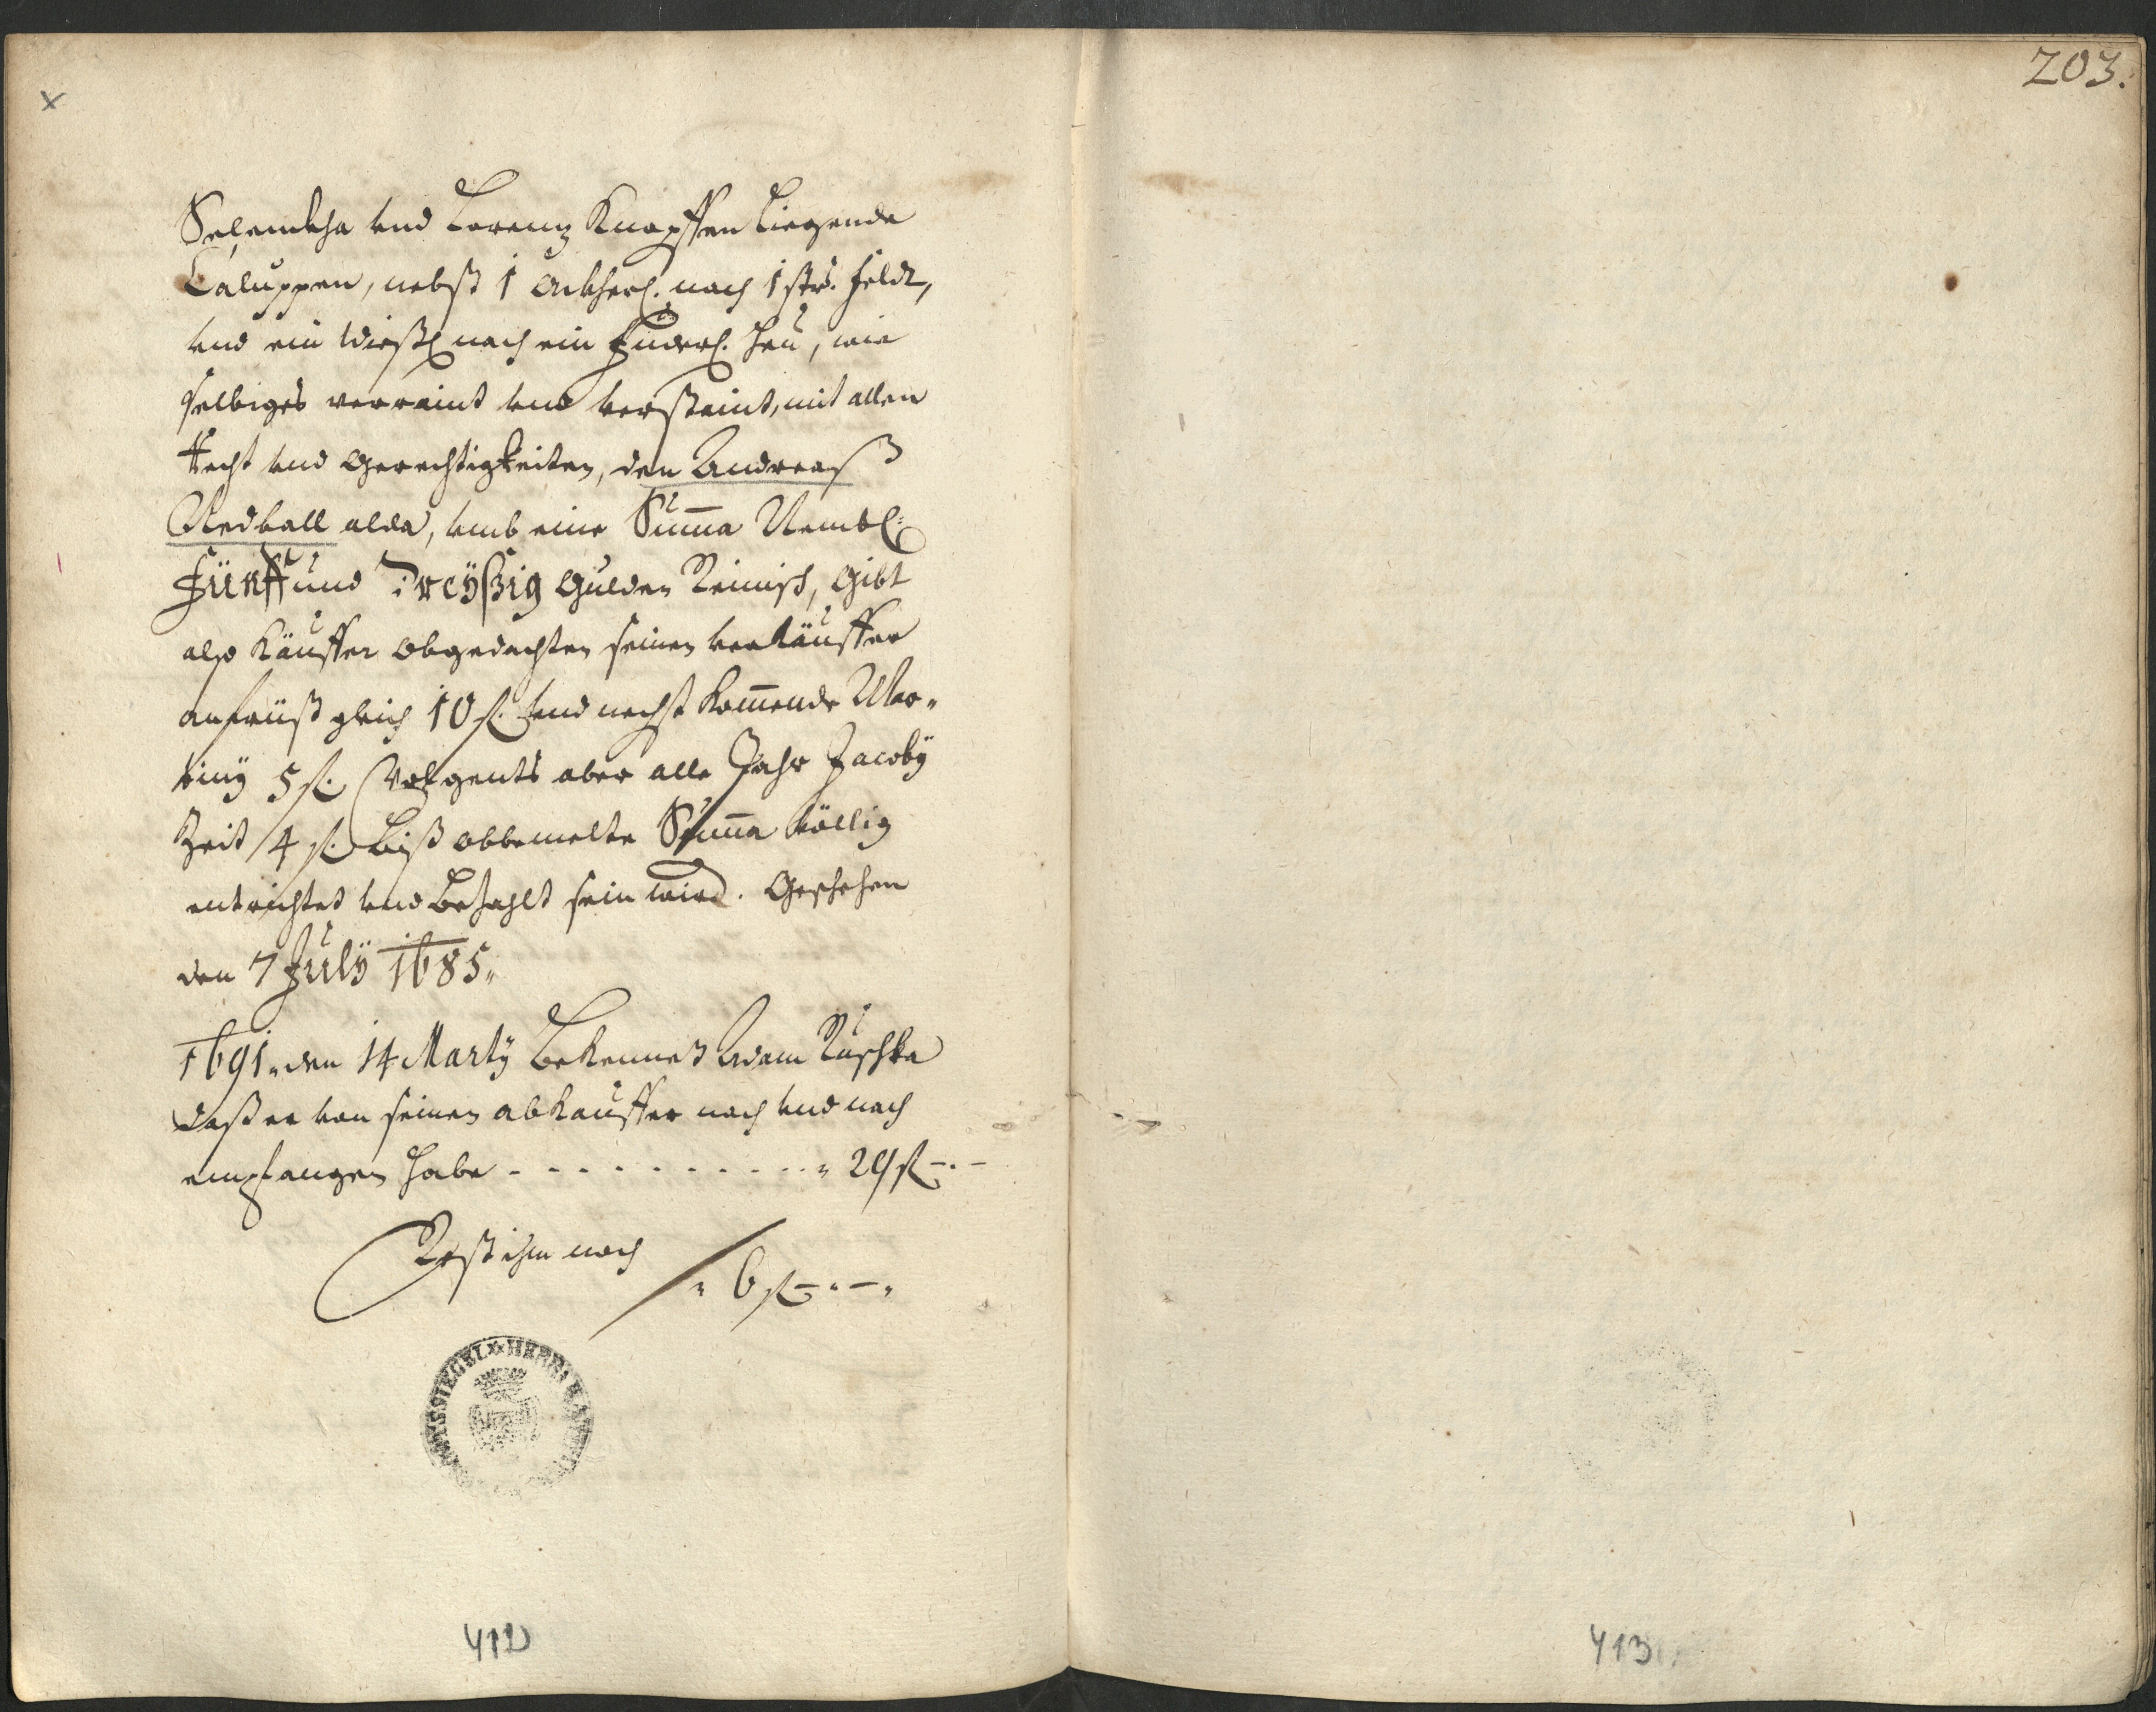 203.
x
Selemkha vnd Lorenz Knopffen Liegende
Caluppen, nebst 1 Ackherl. nach 1 str. feldt,
vnd ein Wießl nach ein Fuderl. Heu, wie
selbiges verraint vnd verstaint, mit allen
Recht vnd Gerechtigkeiten, den Andreaß
Nedball alda, vmb eine Suma Nembl:
Fünff und Dreyßig Gulden Reinisch, Gibt
also Käuffer obgedachten seinen verkäuffer
anfeüß gleich 10 fl. vnd nechst komende Mar„
tiny 5 fl. Volgents aber alle Jahr Jacoby
Zeit 4 fl. Biß obbemelte Suma völlig
entrichtet vnd Bezahlt sein wird. Geschehen
den 7 July 1685„
1691 „ den 14 Marty Bekennet Adam Ruschka
daß er von seinen abkauffer nach vnd nach
empfangen habe - - - - - - - - - - „ 29 fl - . -
Rest ihm noch „ 6 fl - „ - „
AMTSSIEGEL HERR
412
413